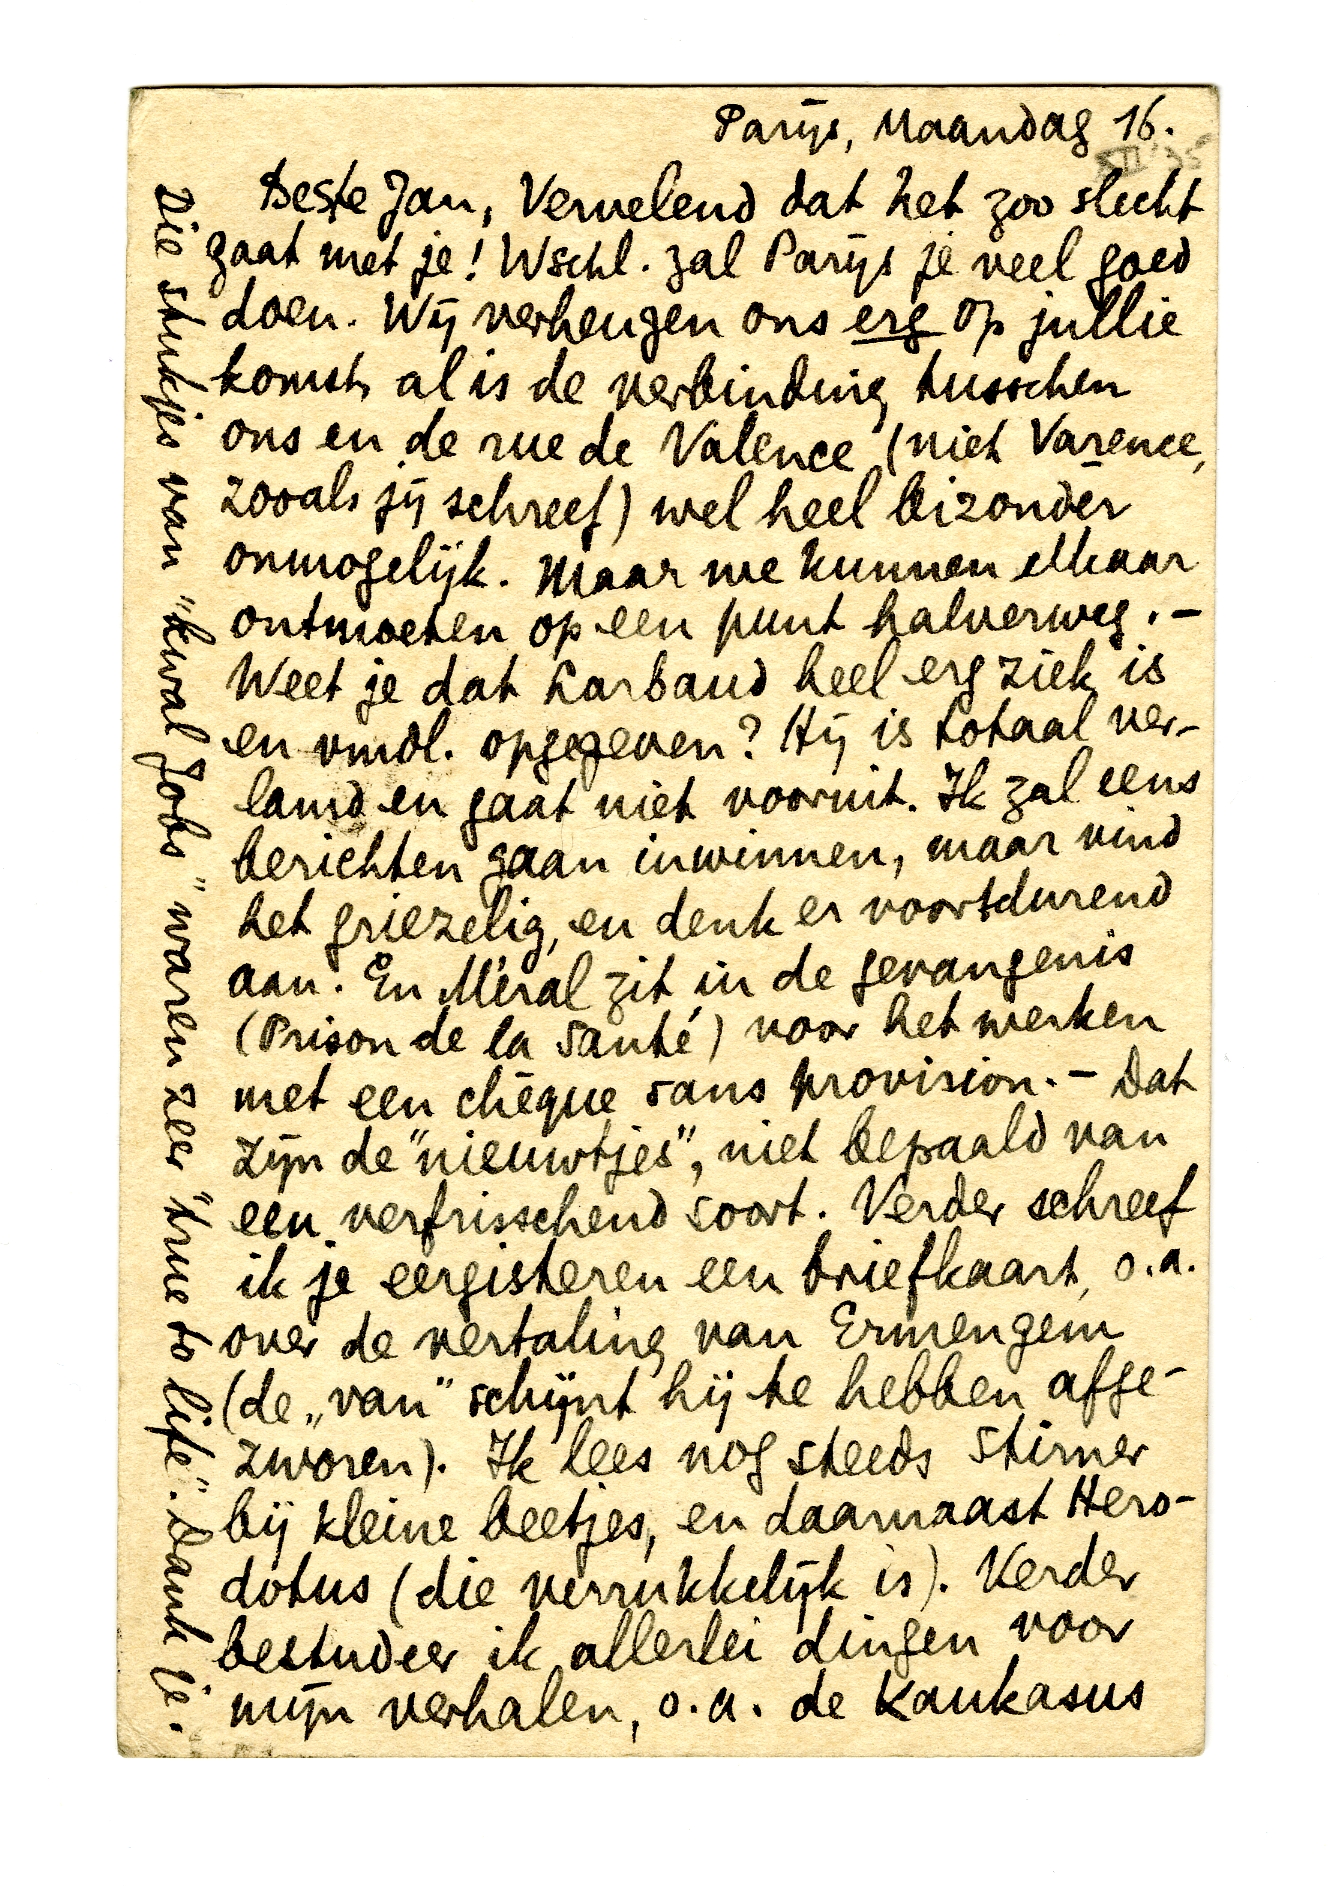 Parijs, Maandag 16.
XII '35
Beste Jan, Vervelend dat het zoo slecht
gaat met je! Wschl. zal Parijs je veel goed
doen. Wij verheugen ons erg op jullie
komst, al is de verbinding tusschen
ons en de rue de Valence (niet Varence,
zooals jij schreef) wel heel bizonder
onmogelijk. Maar we kunnen elkaar
ontmoeten op een punt halverweg. –
Weet je dat Larbaud heel erg ziek is
en vmdl. opgegeven? Hij is totaal ver-
lamd en gaat niet vooruit. Ik zal eens
berichten gaan inwinnen, maar vind
het griezelig, en denk er voortdurend
aan. En Méral zit in de gevangenis
(Prison de la Santé) voor het werken
met een chèque sans provision. – Dat
zijn de "nieuwtjes", niet bepaald van
een verfrisschend soort. Verder schreef
ik je eergisteren een briefkaart, o.a.
over de vertaling van Ermengem
(de „van" schijnt hij te hebben afge-
zworen). Ik lees nog steeds Stirner
bij kleine beetjes, en daarnaast Hero-
dotus (die verrukkelijk is). Verder
bestudeer ik allerlei dingen voor
mijn verhalen, o.a. de Kaukasus
Die stukjes van "kwal Jobs" waren zeer "true to life". Dank je.